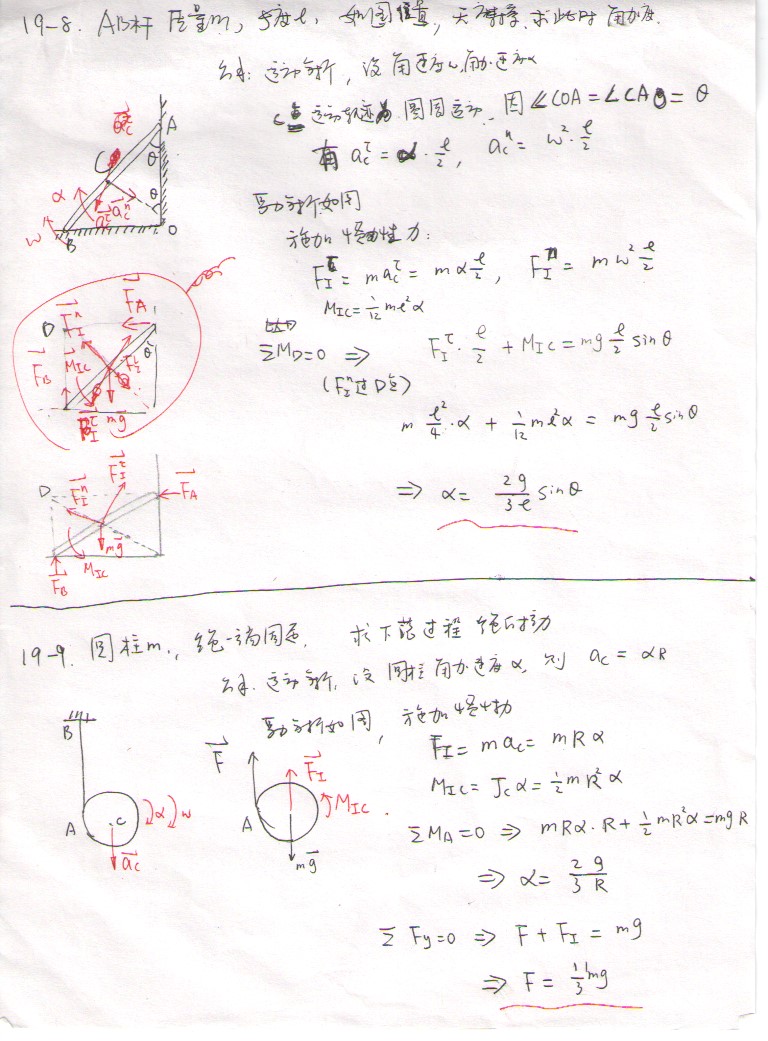 19-8. AB杆 质量m, 长度l, 如图位置, 无摩擦. 求此时 角加速度.
解: 运动分析, 设角速度ω, 角加速度α
C 运动轨迹为 圆周运动. 因 ∠COA = ∠CAO = θ
有 a_C^τ = α · l/2, a_C^n = ω² · l/2
A
C
θ
θ
α
ω
B
O
a_C^τ
a_C^n
受力分析如图
施加惯性力:
F_I^τ = m a_C^τ = m α l/2, F_I^n = m ω² l/2
M_IC = 1/12 m l² α
ΣM_D = 0 ⇒ F_I^τ · l/2 + M_IC = mg l/2 sinθ
(F_I^n 过D点)
m l²/4 · α + 1/12 m l² α = mg l/2 sinθ
⇒ α = 2g/3l sinθ
D
F_I^n
F_A
M_IC
F_B
θ
F_I^τ
mg
D
F_I^n
F_I^τ
F_A
mg
F_B
M_IC
19-9. 圆柱m, 绳一端固定. 求下落过程 绳的拉力
解: 运动分析, 设圆柱角加速度α, 则 a_C = αR
受力分析如图, 施加惯性力
F_I = m a_C = m R α
M_IC = J_C α = 1/2 m R² α
ΣM_A = 0 ⇒ mRα · R + 1/2 mR²α = mgR
⇒ α = 2/3 g/R
ΣF_y = 0 ⇒ F + F_I = mg
⇒ F = 1/3 mg
B
A
C
α
ω
a_C
F
F_I
A
M_IC
mg